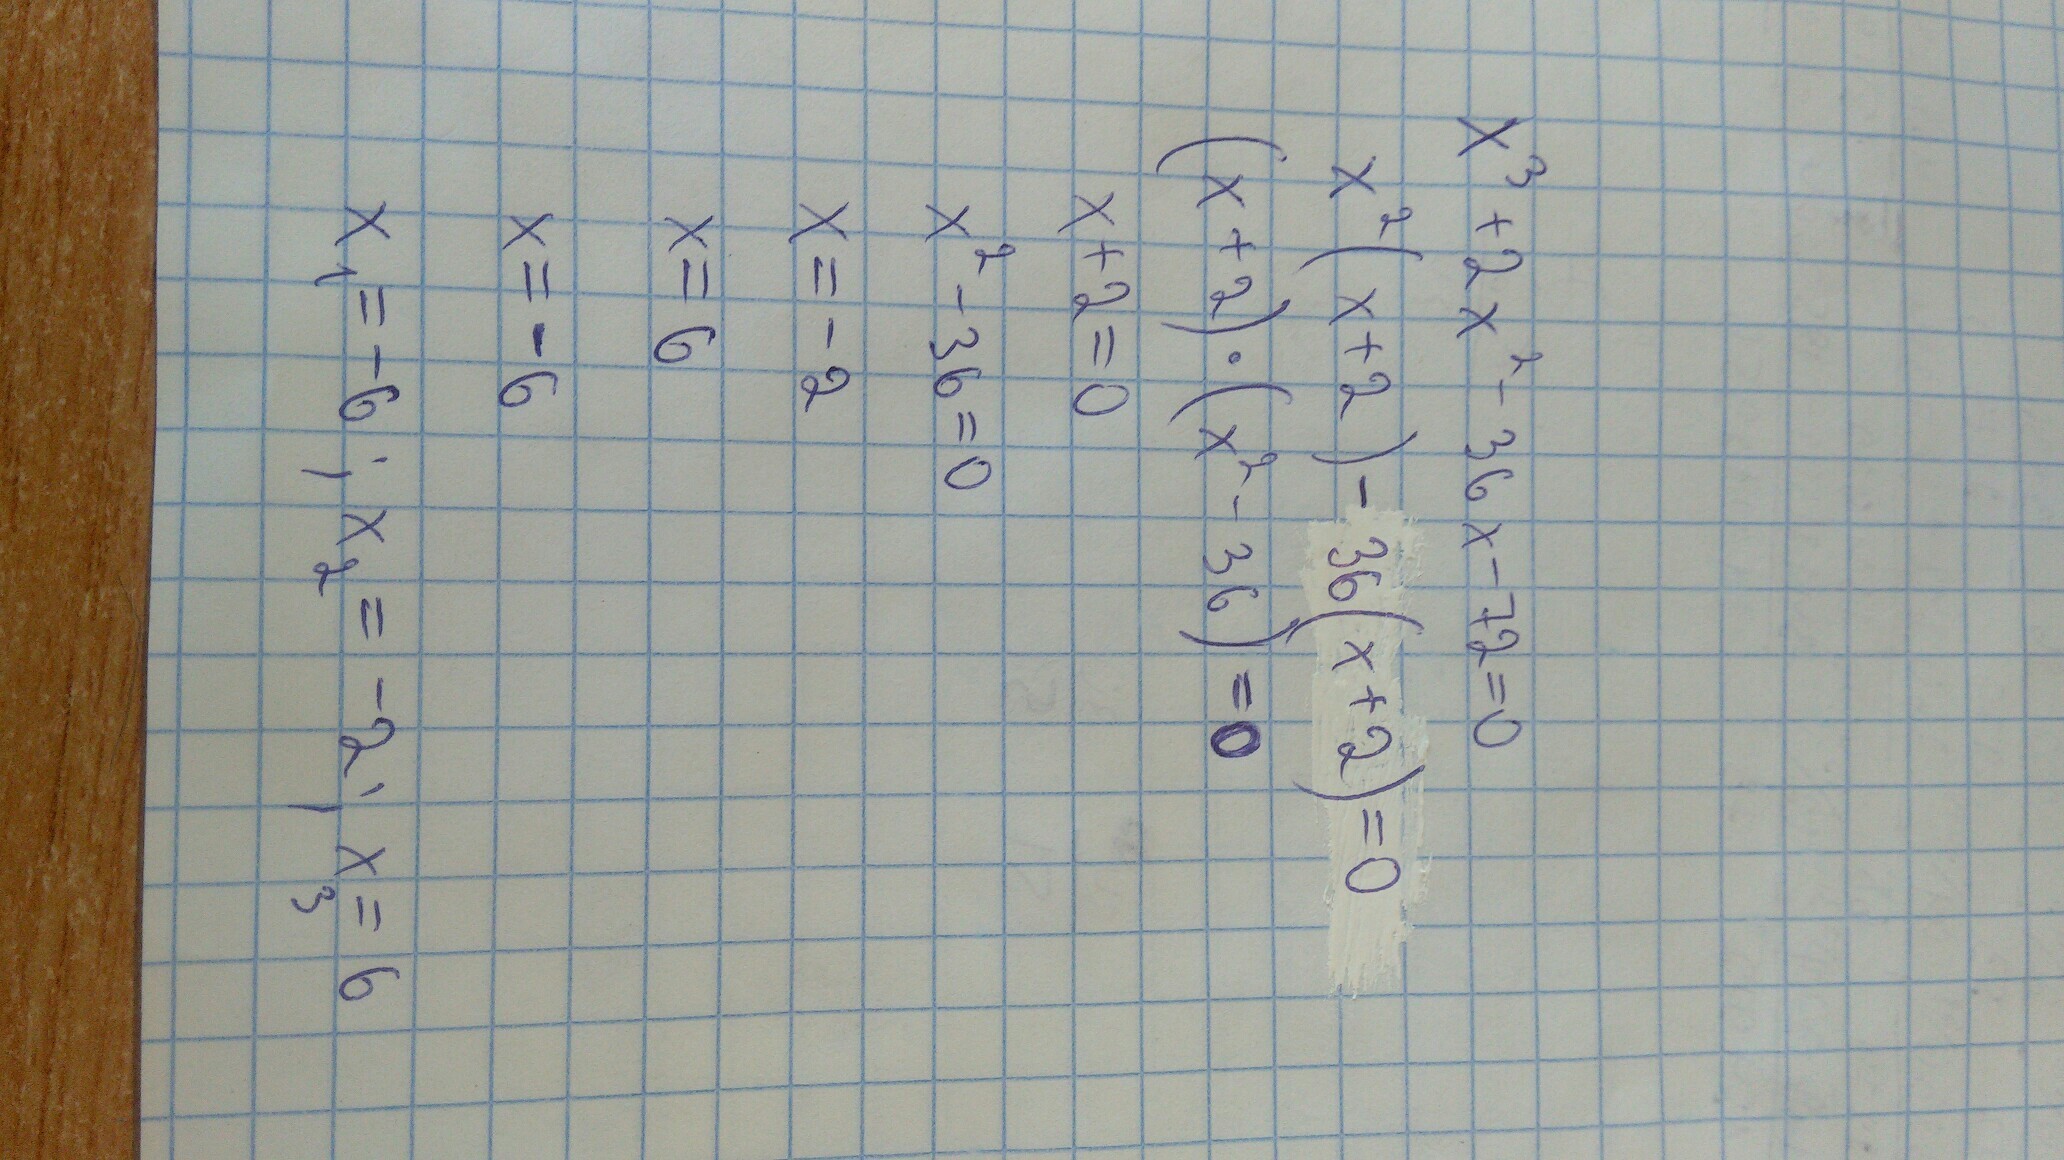 x³+2x²-36x-72=0
x²(x+2)-36(x+2)=0
(x+2)·(x²-36)=0
x+2=0
x²-36=0
x=-2
x=6
x=-6
x₁=-6; x₂=-2; x₃=6